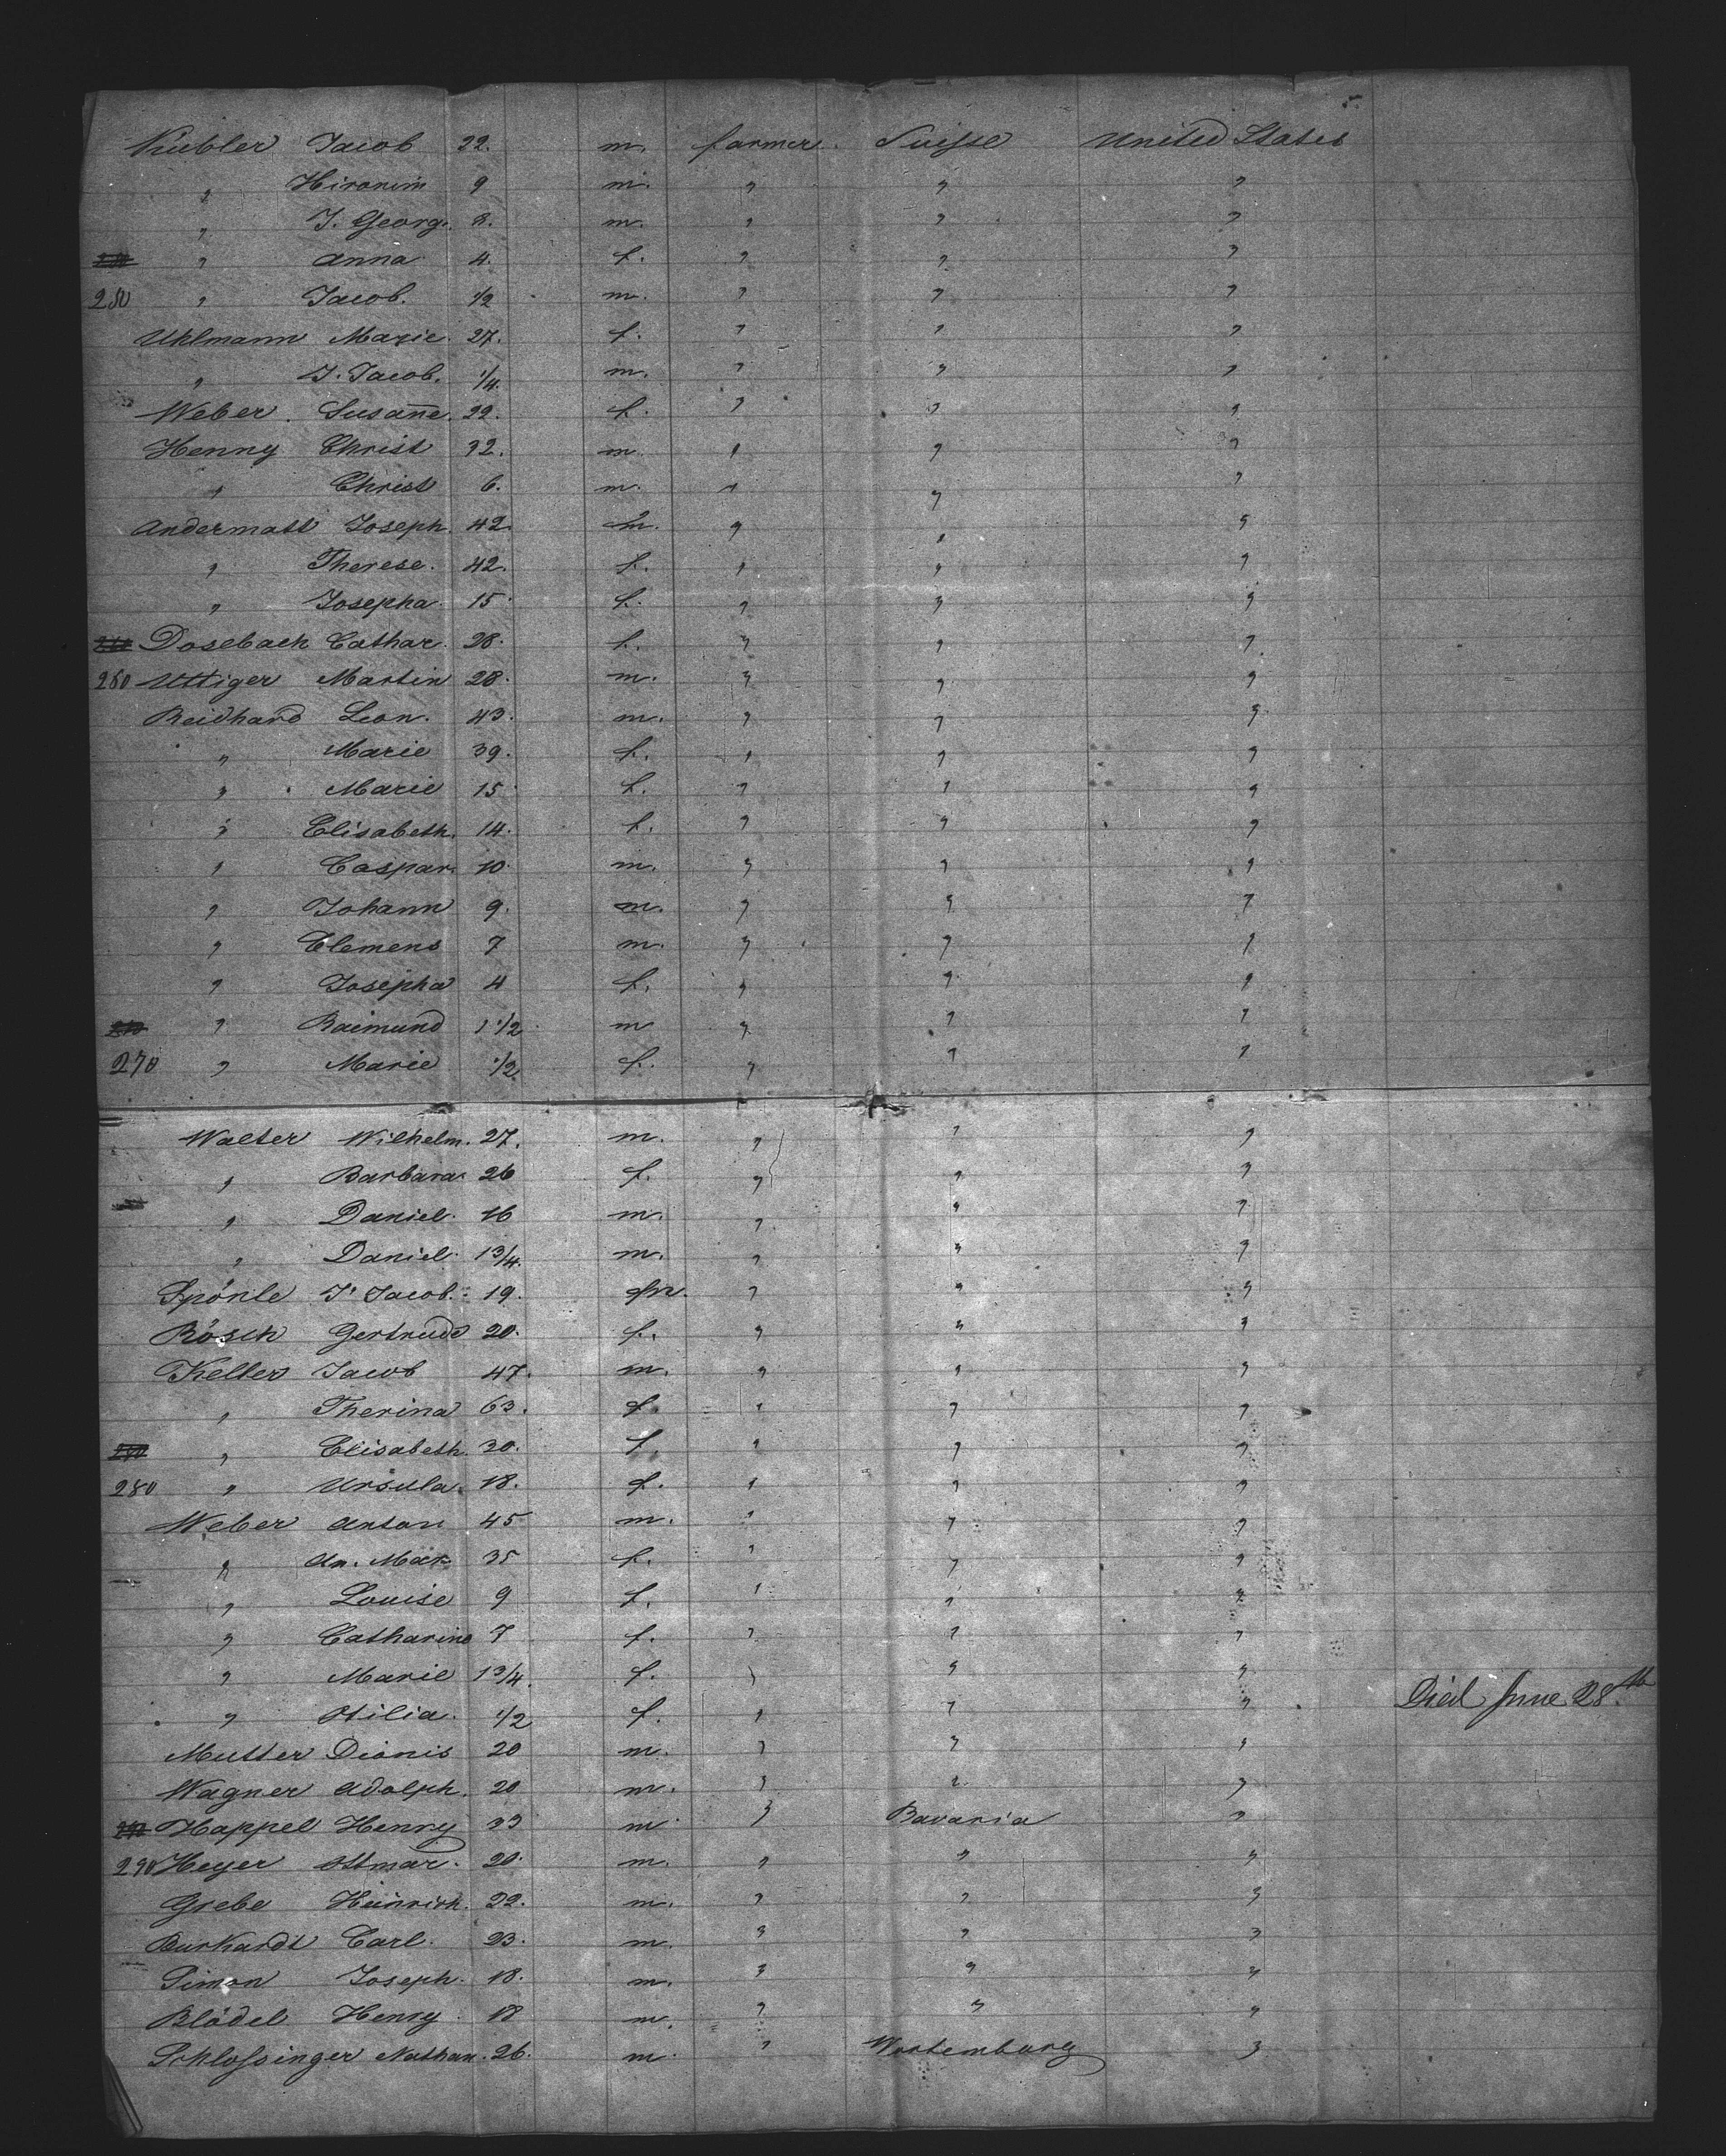 Kübler Jacob 22. m. farmer. Suisse United States
" Hironim 9 m. " " "
" J. Georg. 8. m. " " "
" Anna 4. f. " " "
250 " Jacob. 1/2 m. " " "
Uhlmann Marie 27. f. " " "
" J. Jacob. 1/4. m. " " "
Weber. Susan̅e. 22. f. " " "
Henny Christ 32. m. " " "
" Christ 6. m. " " "
Andermatt Joseph. 42. m. " " "
" Therese. 42. f. " " "
" Josepha. 15 f. " " "
Dosebach Cathar. 28. f. " " "
260 Uttiger Martin 28. m. " " "
Reidhard Leon. 43. m. " " "
" Marie 39. f. " " "
" Marie 15 f. " " "
" Elisabeth. 14. f. " " "
" Caspar. 10. m. " " "
" Johann 9. m. " " "
" Clemens 7 m. " " "
" Josepha 4 f. " " "
" Raimund 1 1/2 m " " "
270 " Marie 1/2 f. " " "
Walter Wilhelm. 27. m. " " "
" Barbara. 26 f. " " "
" Daniel. 16 m. " " "
" Daniel. 1 3/4. m. " " "
Spönle J. Jacob. 19. m. " " "
Rösch Gertrude 20. f. " " "
Keller Jacob 47. m. " " "
" Therina 63. f. " " "
" Elisabeth. 30. f. " " "
280 " Ursula. 18. f. " " "
Weber Anton 45 m. " " "
" An. Mar. 35 f. " " "
" Louise 9 f. " " "
" Catharine 7 f. " " "
" Marie 1 3/4. f. " " "
" Otilia. 1/2 f. " " " Died June 28.th
Mutter Dionis 20 m. " " "
Wagner Adolph. 20 m. " " "
Happel Henry 33 m. " Bavaria "
290 Heyer Ottmar. 20. m. " " "
Grebe Heinrich. 22. m. " " "
Burkardt Carl. 23. m. " " "
Simon Joseph. 18. m. " " "
Blödel Henry. 18 m. " " "
Schlossinger Nathan. 26. m. " Wortemburg "